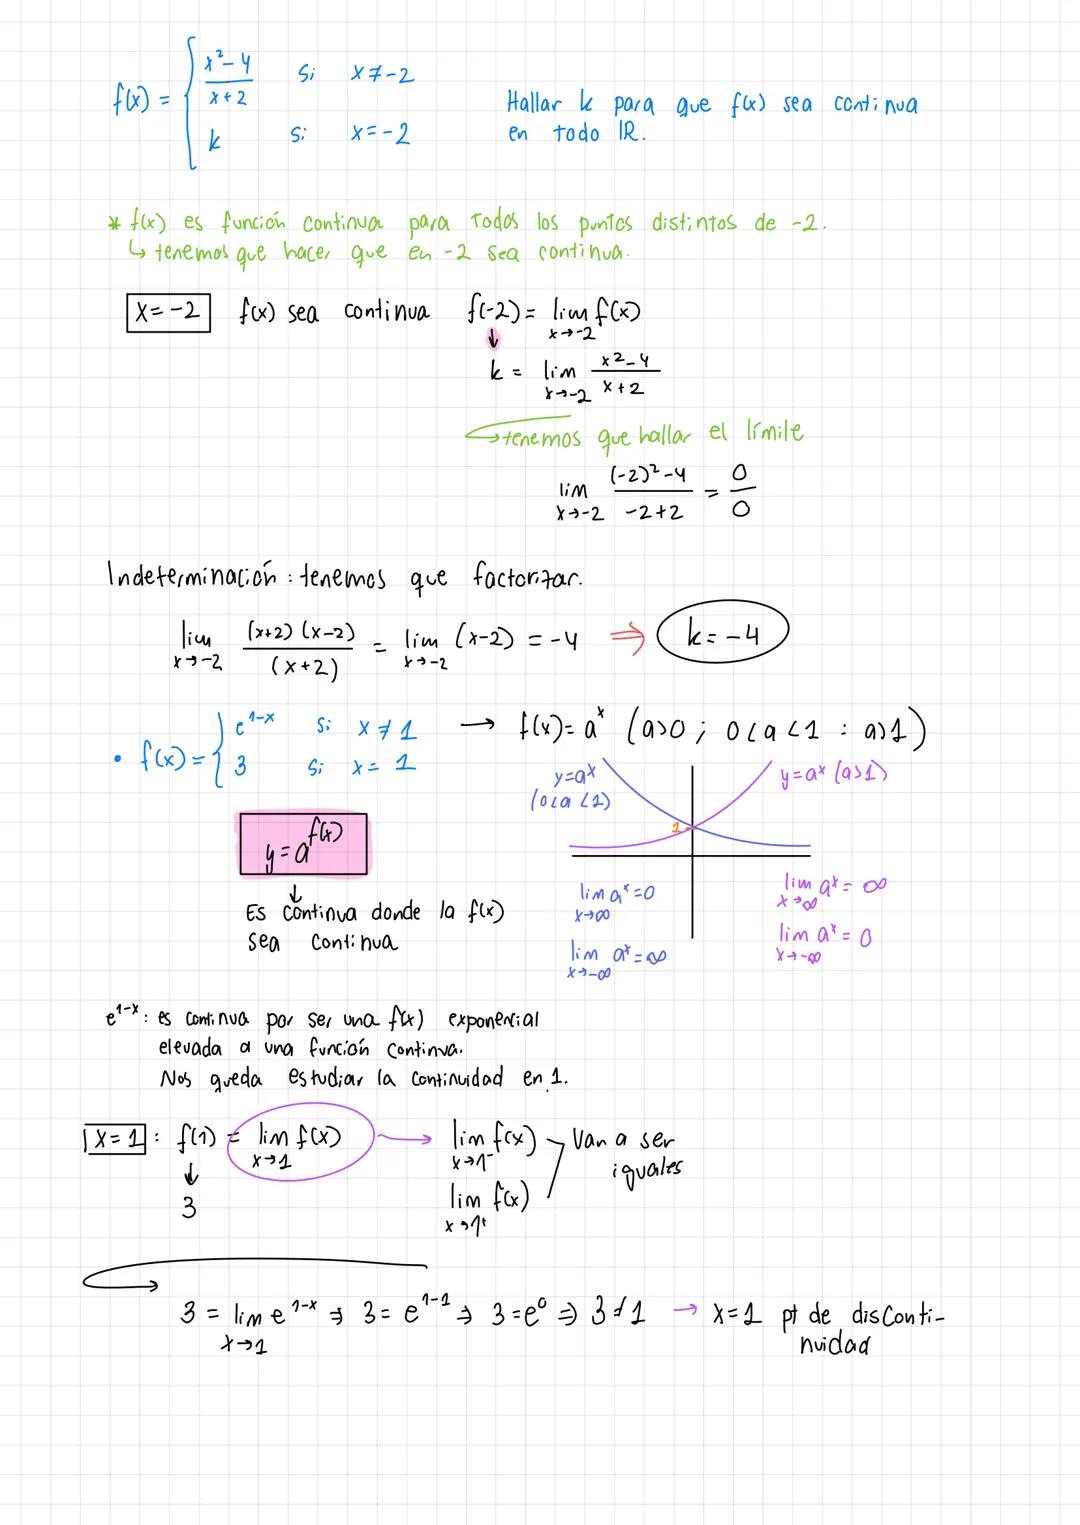 f(x) = { x²-4 / x+2 si x≠-2
k si x=-2
Hallar k para que f(x) sea continua
en todo ℝ.
* f(x) es función continua para todos los puntos distintos de -2.
↳ tenemos que hacer que en -2 sea continua.
x=-2 f(x) sea continua f(-2) = lim f(x)
x→-2
↓
k = lim x²-4 / x+2
x→-2
→ tenemos que hallar el límite
lim (-2)²-4 / -2+2 = 0/0
x→-2
Indeterminación: tenemos que factorizar.
lim (x+2)(x-2) / (x+2) = lim (x-2) = -4 ⇒ k=-4
x→-2 x→-2
• f(x) = { e^1-x si x≠1 → f(x)=a^x (a>0; 0<a<1 : a>1)
3 si x=1
y=a^x
(0<a<1)
y=a^x (a>1)
1
y=a^f(x)
↓
Es continua donde la f(x)
sea continua
lim a^x=0
x→∞
lim a^x=∞
x→-∞
lim a^x=∞
x→∞
lim a^x=0
x→-∞
e^1-x: es continua por ser una f(x) exponencial
elevada a una función continua.
Nos queda estudiar la continuidad en 1.
x=1: f(1) = lim f(x) → lim f(x) Van a ser
x→1 x→1⁻ iguales
↓
3 lim f(x)
x→1⁺
3 = lim e^1-x ⇒ 3=e^1-1 ⇒ 3=e⁰ ⇒ 3≠1 → x=1 pt de disconti-
x→1 nuidad